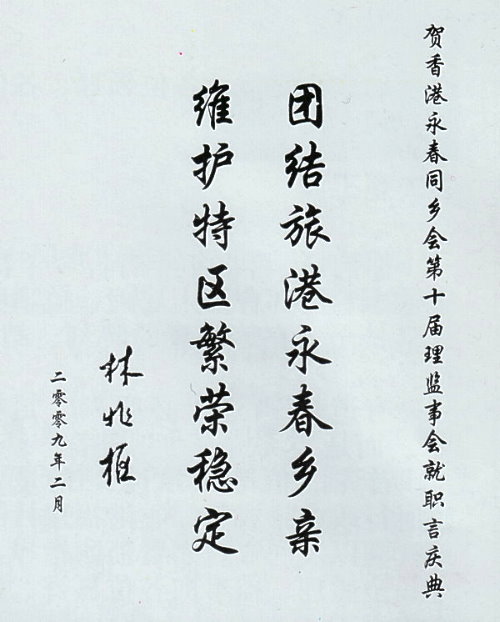 贺香港永春同乡会第十届理监事会就职言庆典
团结旅港永春乡亲
维护特区繁荣稳定
林兆枢
二零零九年二月